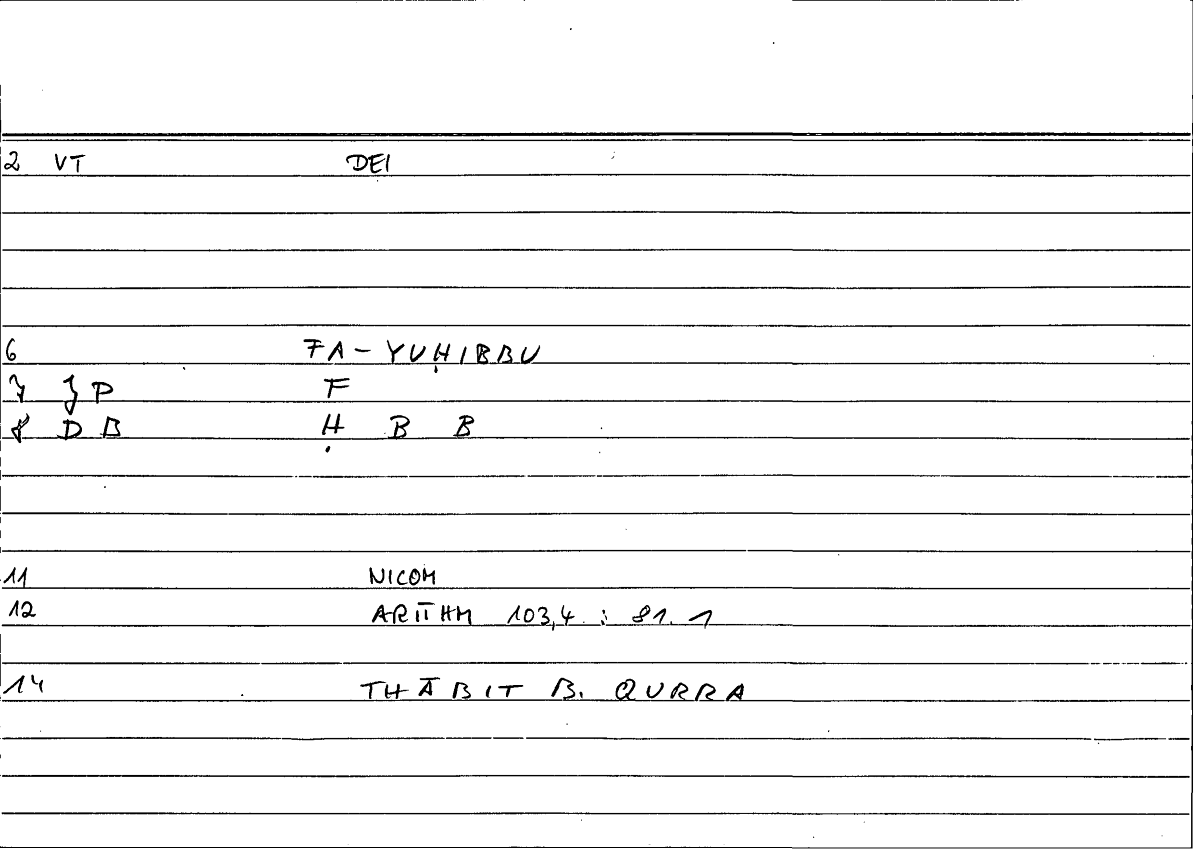 2 VT DEI
6 FA-YUḤIBBU
7 } P F
8 D B Ḥ B B
11 NICOM
12 ARITHM 103,4 : 81.1
14 THĀBIT B. QURRA